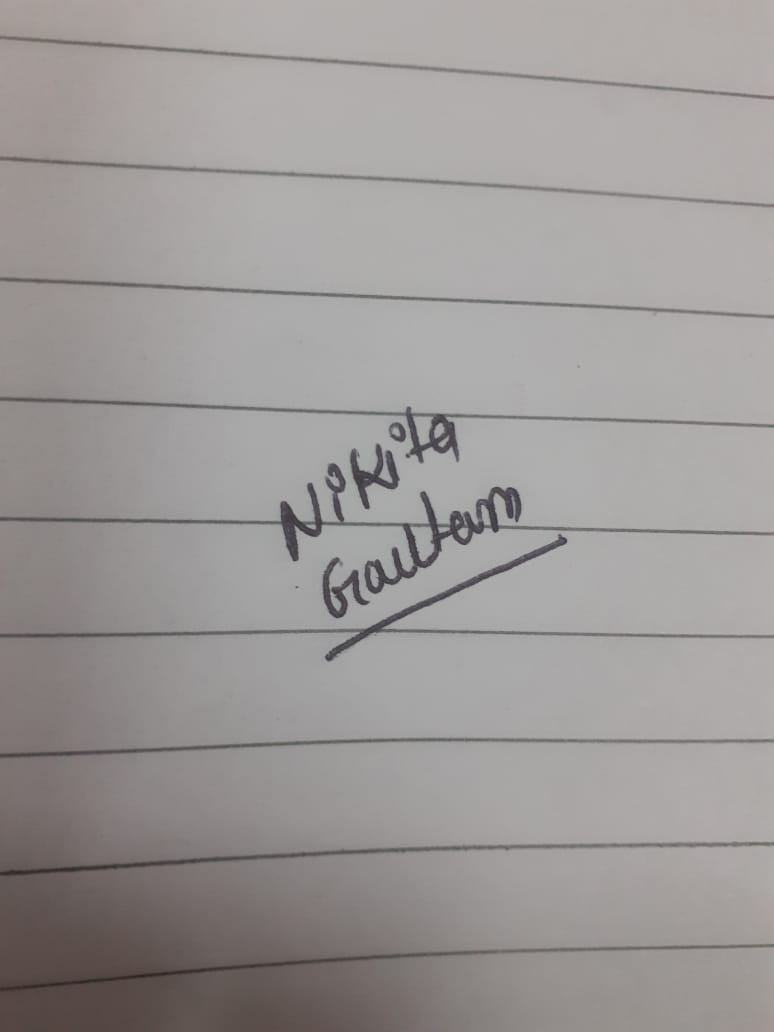 Nikita
Gautam